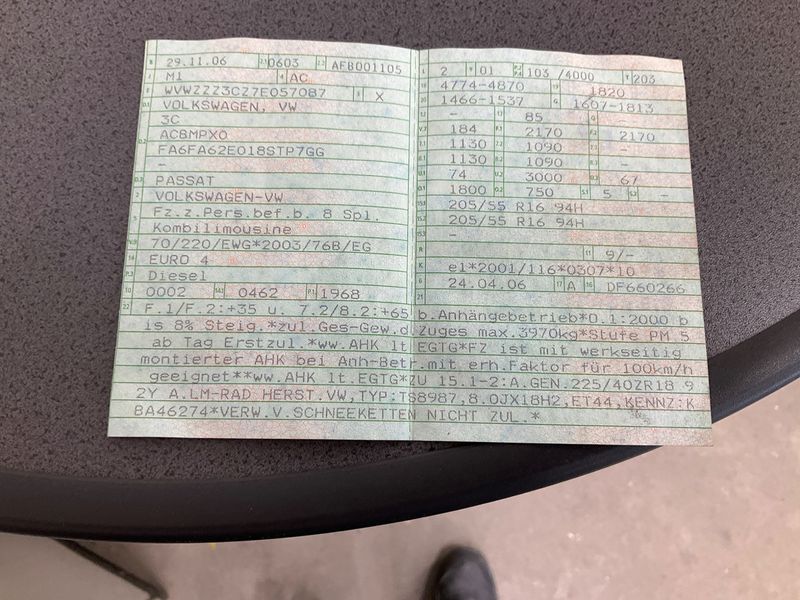 29.11.06 0603 AFB001105
M1 AC
WVWZZZ3CZ7E057087 X
VOLKSWAGEN, VW
3C
ACBMPX0
FA6FA62E018STP7GG
-
PASSAT
VOLKSWAGEN-VW
Fz.z.Pers.bef.b. 8 Spl.
Kombilimousine
70/220/EWG*2003/76B/EG
EURO 4
Diesel
0002 0462 1968
2 01 103 /4000 203
4774-4870 1820
1466-1537 1607-1813
- 85 -
184 2170 2170
1130 1090 -
1130 1090 -
74 3000 67
1800 750 5 -
205/55 R16 94H
205/55 R16 94H
-
9/-
e1*2001/116*0307*10
24.04.06 A DF660266
F.1/F.2:+35 u. 7.2/8.2:+65 b.Anhängebetrieb*O.1:2000 b
is 8% Steig.*zul.Ges-Gew.d.Zuges max.3970kg*Stufe PM 5
ab Tag Erstzul.*ww.AHK lt.EGTG*FZ ist mit werkseitig
montierter AHK bei Anh-Betr.mit erh.Faktor für 100km/h
geeignet**ww.AHK lt.EGTG*ZU 15.1-2:A.GEN.225/40ZR18 9
2Y A.LM-RAD HERST.VW,TYP:TS8987,8.0JX18H2,ET44,KENNZ:K
BA46274*VERW.V.SCHNEEKETTEN NICHT ZUL.*